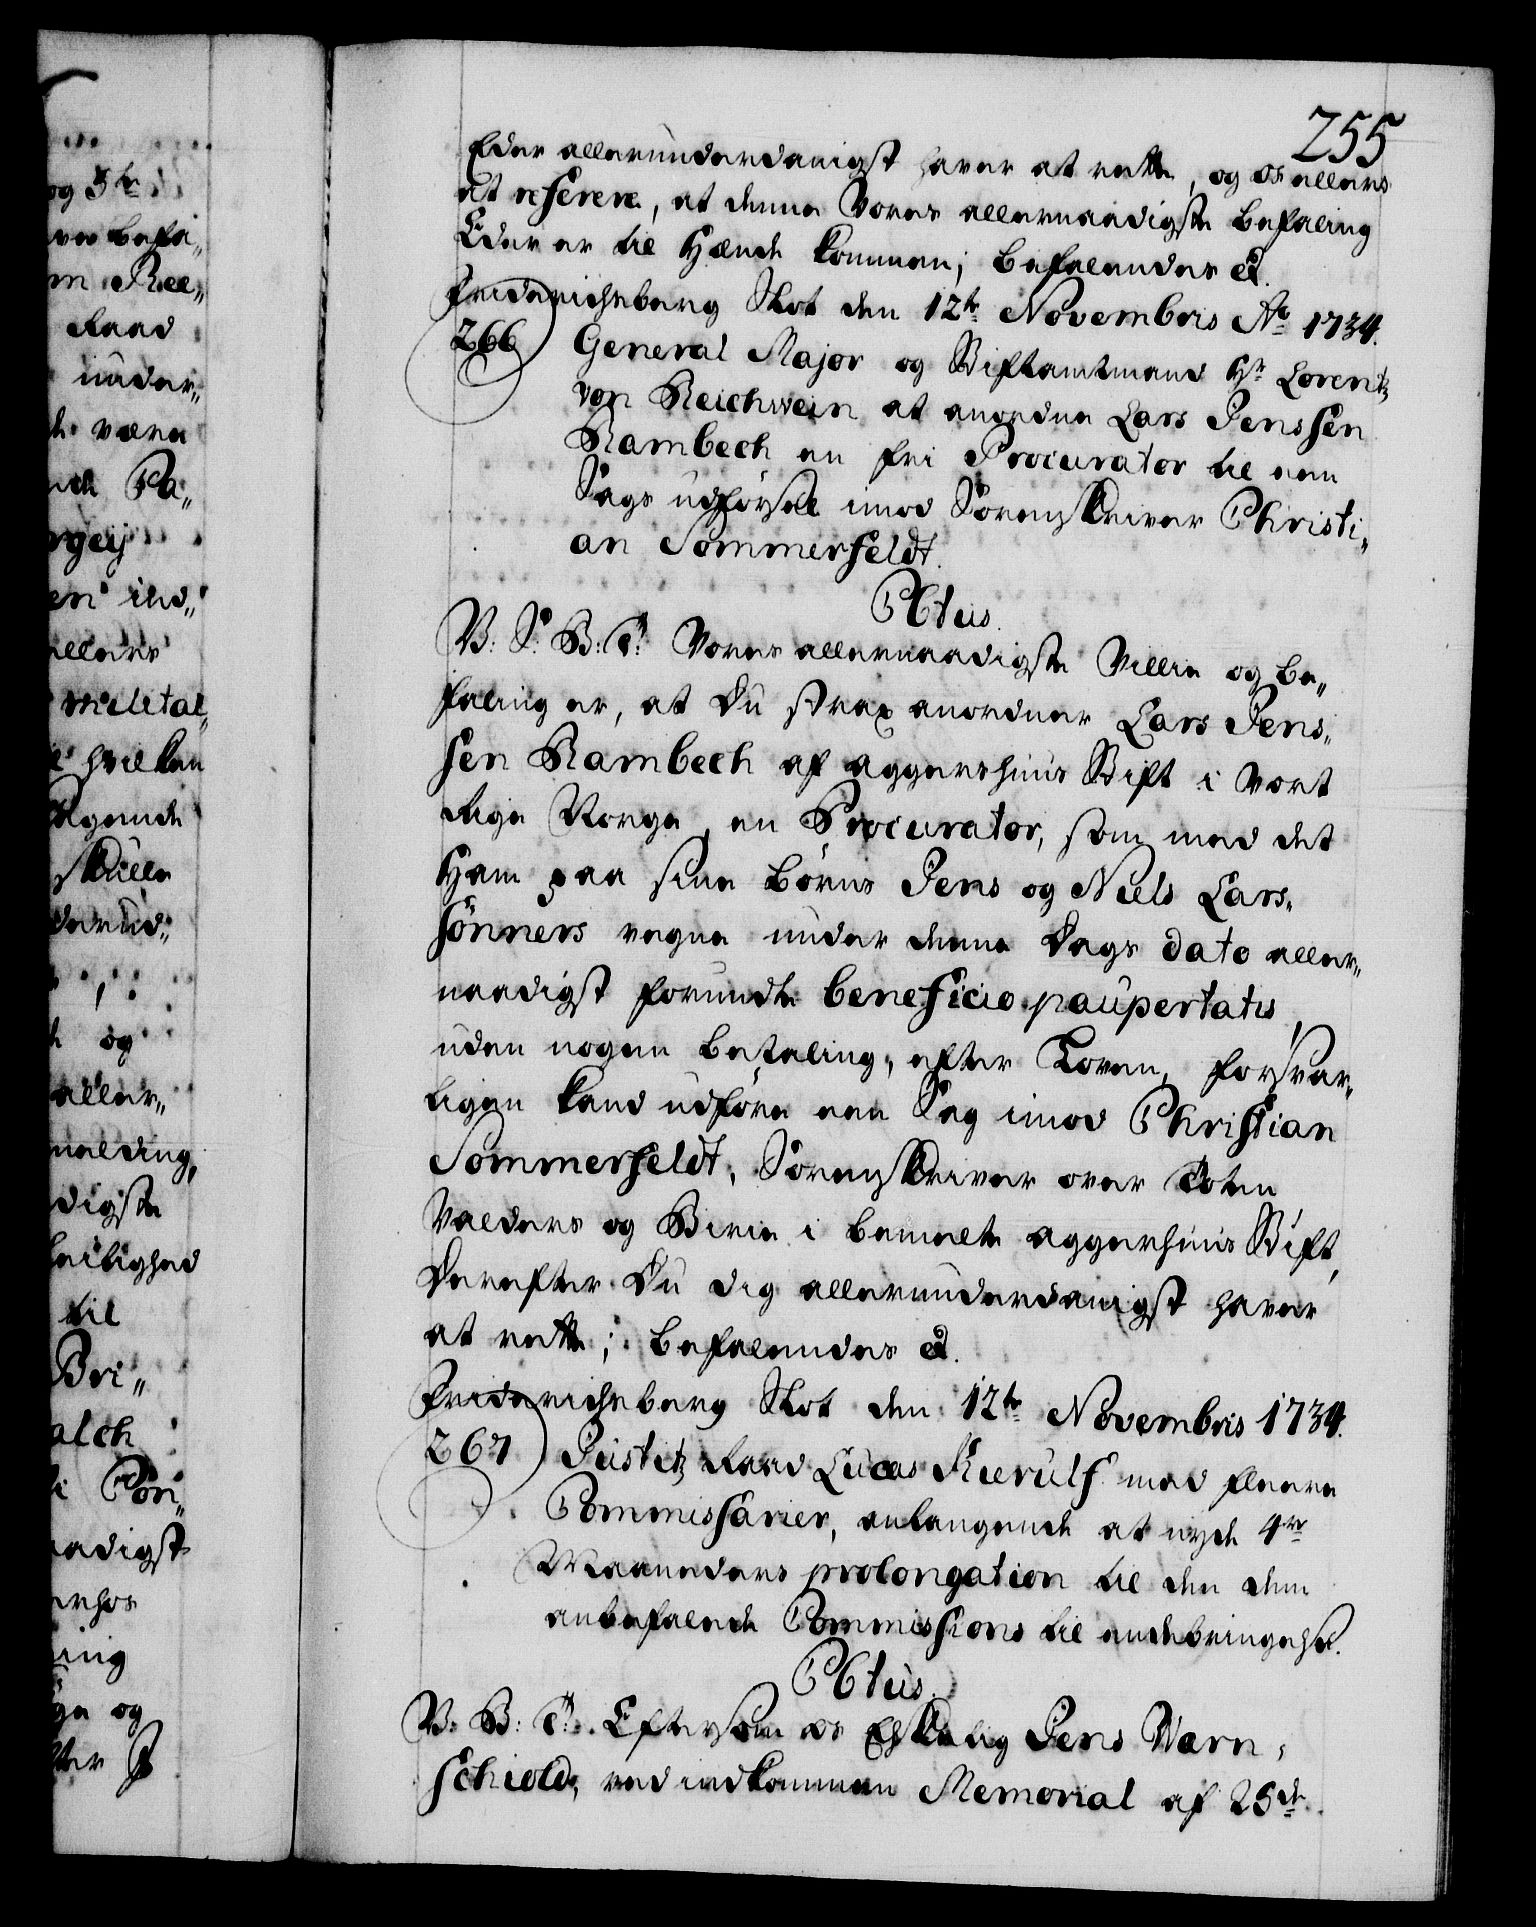 255
Eder allerunderdanigst haver at rette, og os allers
at referere, at denne Vores allernaadigste Befaling
Eder er til Hænde kommen; Befalendes &.
Friderichsberg Slot den 12te Novembris Ao 1734.
266) General Major og Stiftamtmand Hr Lorentz
von Reichwein at anordne Lars Jenssen
Rambech en fri Procurator til een
Sags udførsel imod Sorenskriver Christi„
an Sommerfeldt.
PCtus.
V: S: B: T: Vores allernaadigste Villie og be„
faling er, at Du strax anordner Lars Jens„
sen Rambech af Aggershuus Stift i Vort
Rige Norge, en Procurator, som med det
Ham paa sine Børns Jens og Niels Lars„
sønners vegne under denne Dags dato aller„
naadigst forundte beneficio paupertatis,
uden nogen Betaling, efter Loven, forsvar„
ligen kand udføre een Sag imod Christian
Sommerfeldt, Sorenskriver over Toten
Valders og Birie i bemelte Aggershuus Stift,
Derefter Du dig allerunderdanigst haver
at rette; Befalendes &.
Friderichsberg Slot den 12te Novembris 1734.
267) Justitz Raad Lucas Kierulf med fleere
Commissarier, anlangende at nyde 4re
Maaneders prolongation til den dem
anbefalede Commissions til endebringelse.
PCtus.
V: B: T: Eftersom os Elskelig Jens Værn„
schiold, ved indkommen Memorial af 25de

og 3de
res Befa„
Raad
under„
være
ind„
allers
militai„
hvilken
skulle
og
aller„
melding,
digste
leilighed
til
Bri„
aadigst
og